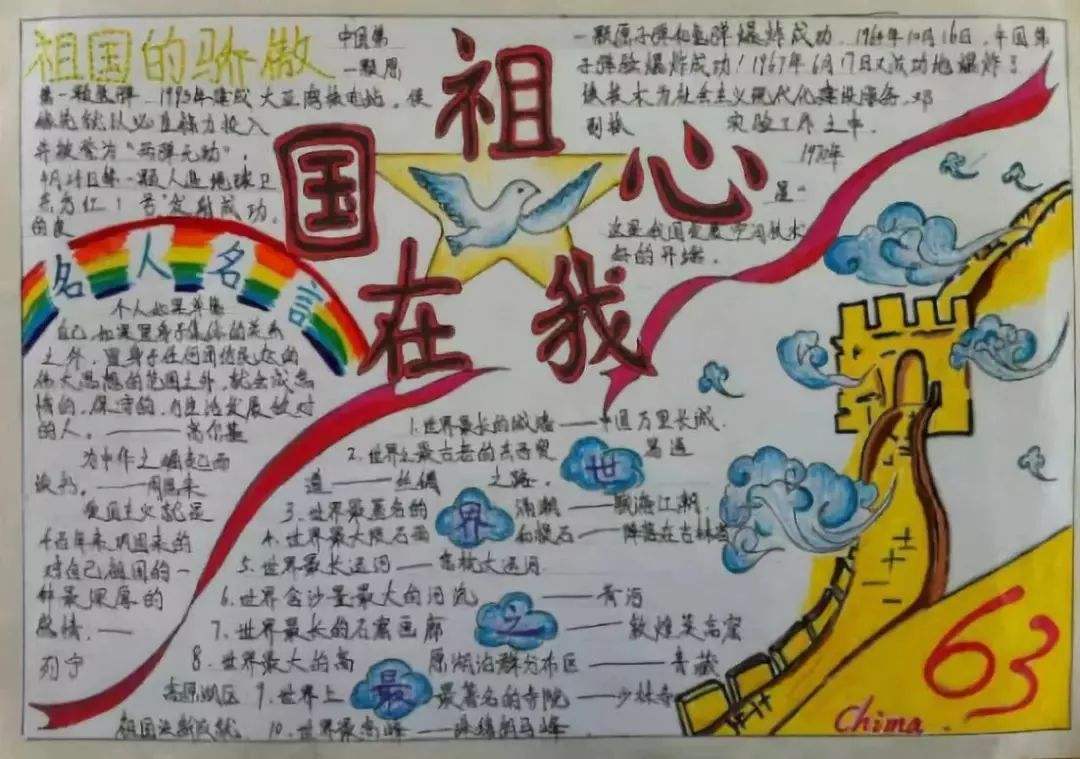 祖国的骄傲
祖国在我心
中国第
一颗原
第一颗氢弹，1993年建成大亚湾核电站，使
并被誉为“两弹元勋”，
4月24日第一颗人造地球卫
一颗原子弹和氢弹爆炸成功，1964年10月16日，中国第
子弹爆炸成功！1967年6月17日又成功地爆炸了
核技术为社会主义现代化建设服务，邓
实验工作之中，
1970年
星一
这是我国发展空间技术
好的开端。
名人名言
个人如果单靠
自己，如果置身于集体的关系
之外，置身于任何团结民众的
伟大思想的范围之外，就会成怠
惰的，保守的，与生活发展敌对
的人。——高尔基
为中华之崛起而
读书。——周恩来
爱国主义就是
千百年来巩固来的
对自己祖国的一
种最深厚的
感情。——
列宁
世界之最
1.世界最长的城墙——中国万里长城.
2.世界上最古老的东西贸易通
道——丝绸之路.
3.世界最著名的涌潮——钱塘江潮.
4.世界最大陨石雨和陨石——降落在吉林省
5.世界最长运河——京杭大运河
6.世界含沙量最大的河流——黄河
7.世界最长的石窟画廊——敦煌莫高窟
8.世界最大的高原湖泊群分布区——青藏
高原湖区
9.世界上最著名的寺院——少林寺
10.世界最高峰——珠穆朗玛峰
63
Chima.